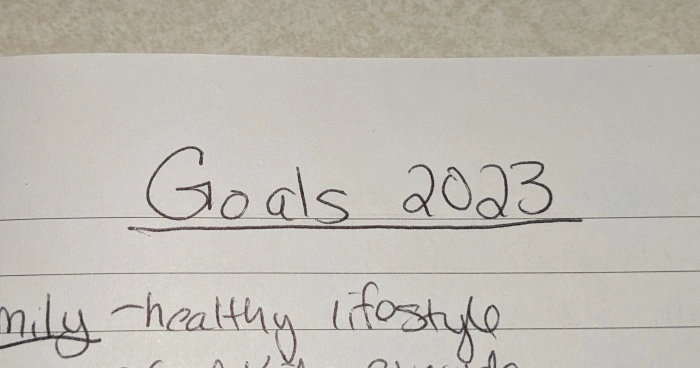 Goals 2023
mily - healthy lifestyle